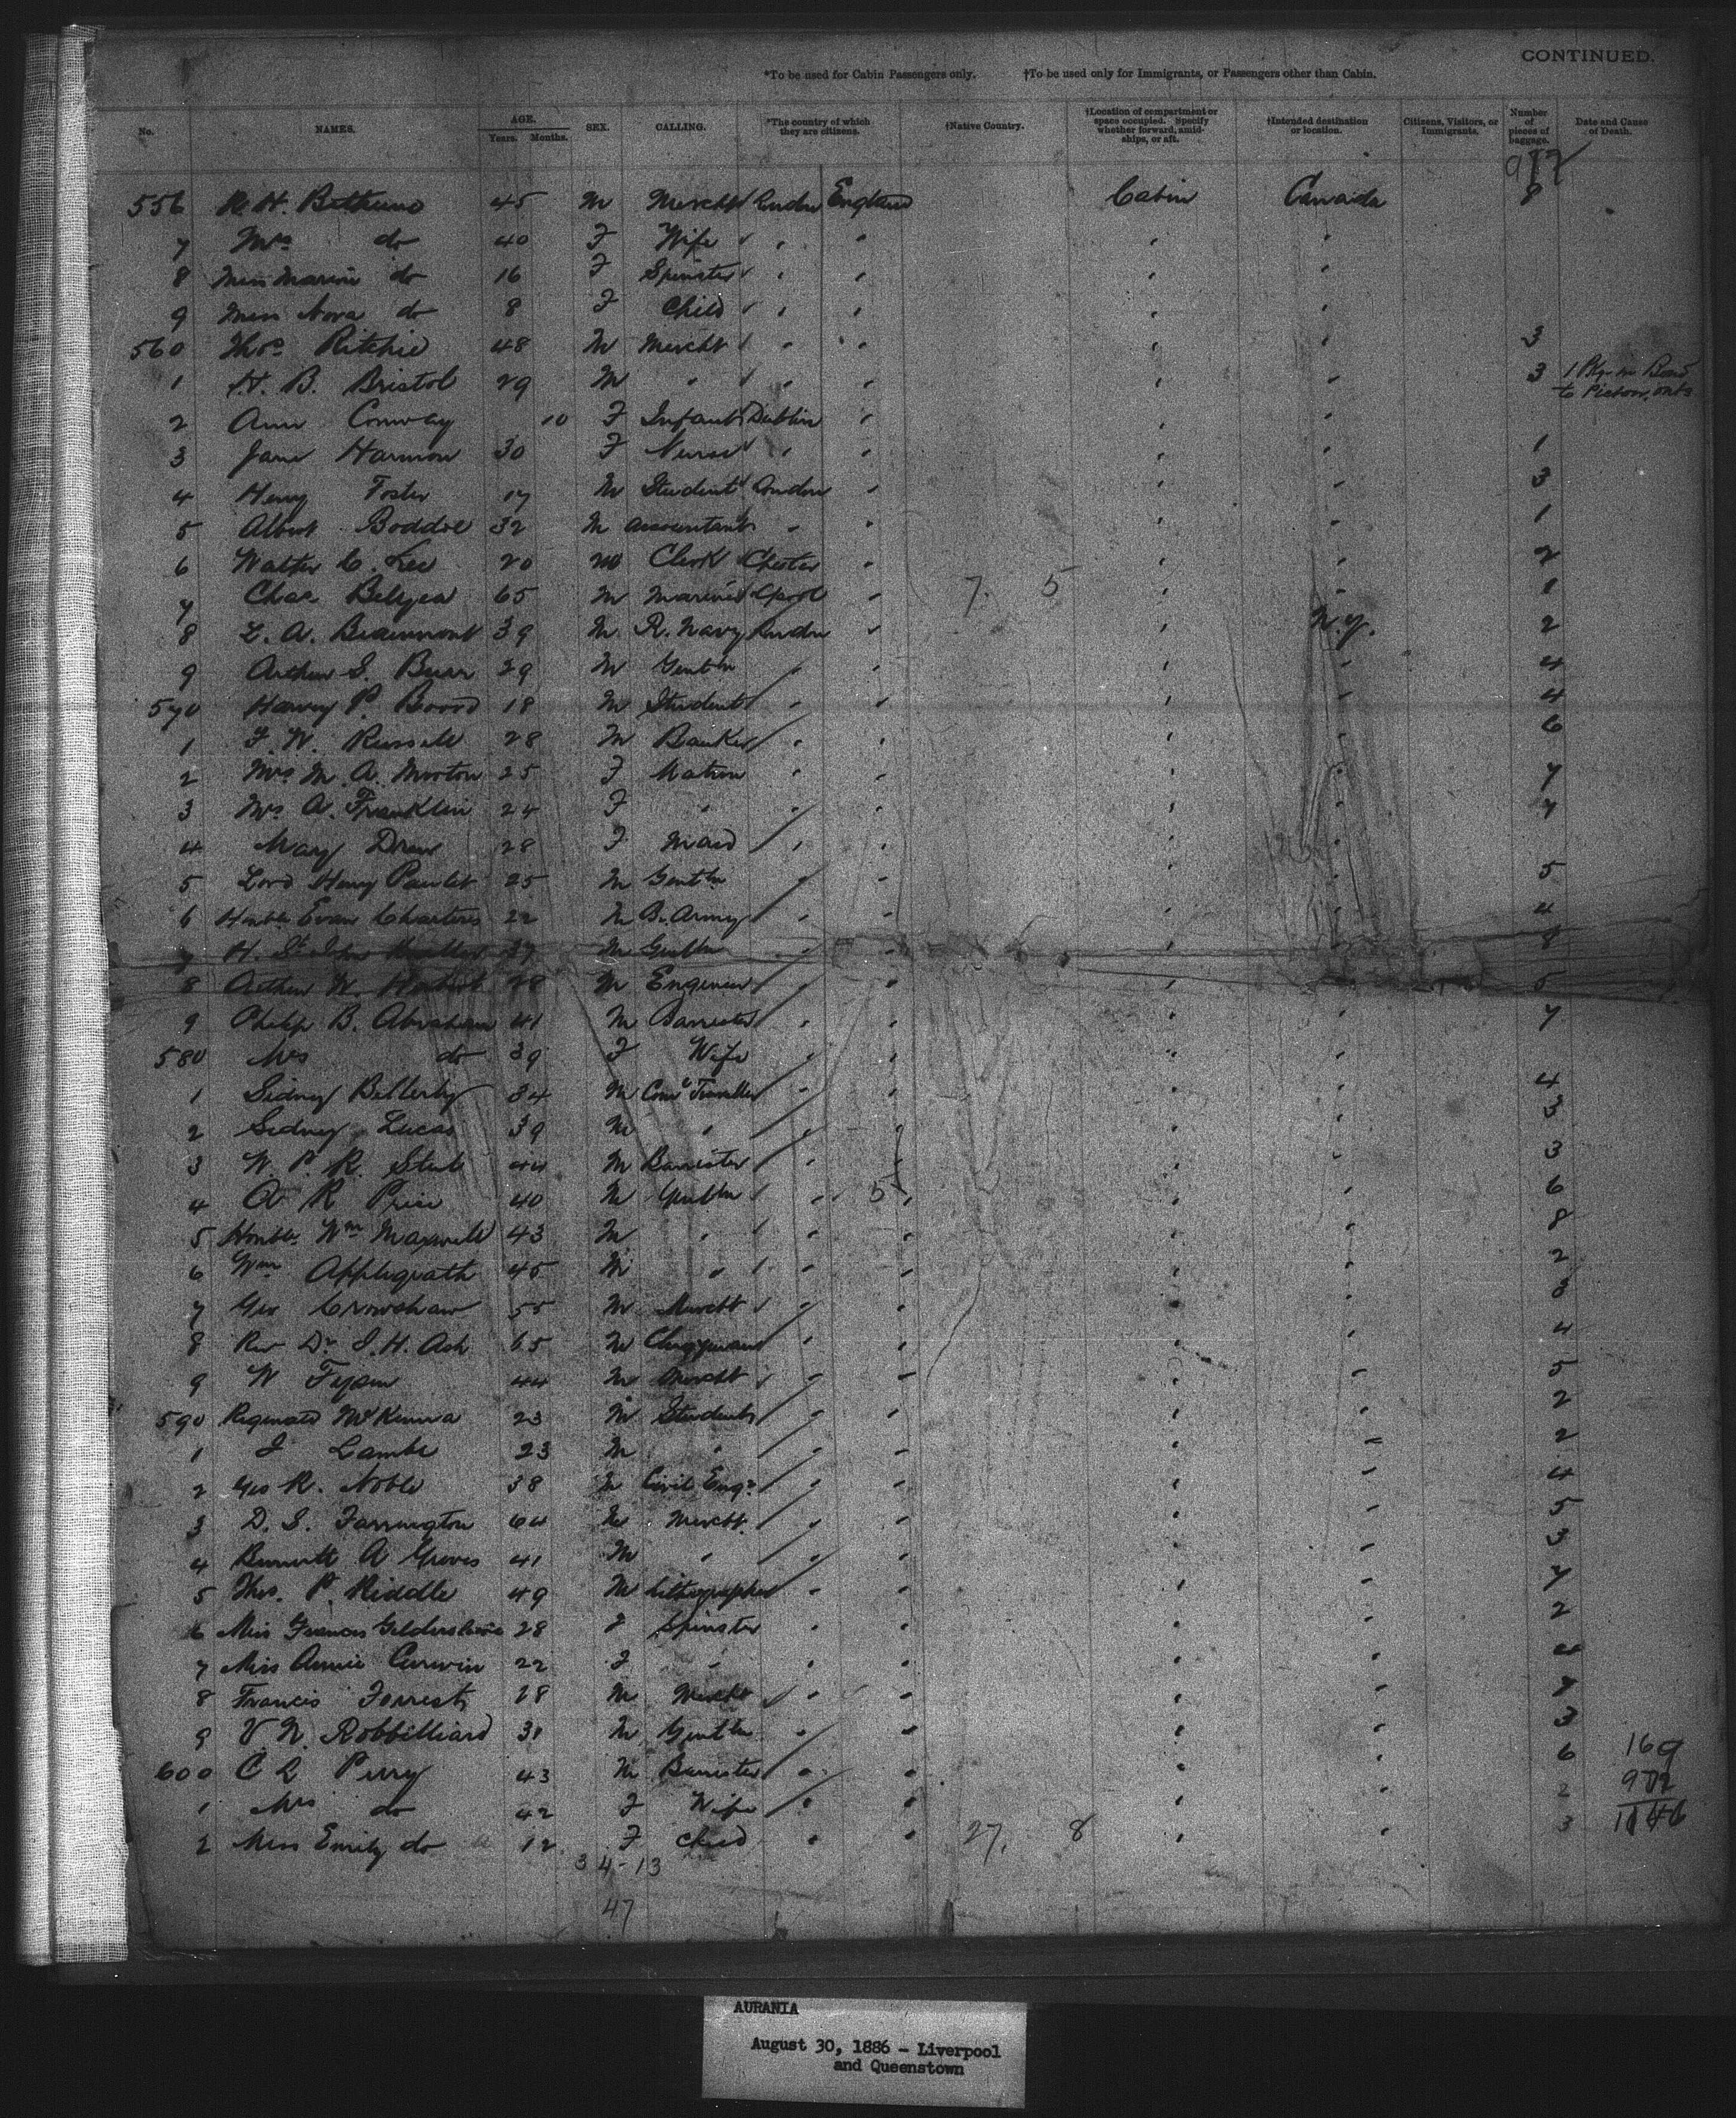 CONTINUED.
*To be used for Cabin Passengers only. †To be used only for Immigrants, or Passengers other than Cabin.
No. NAMES. AGE. Years. Months. SEX. CALLING. *The country of which they are citizens. †Native Country. †Location of compartment or space occupied. Specify whether forward, amidships, or aft. †Intended destination or location. Citizens, Visitors, or Immigrants. Number of pieces of baggage. Date and Cause of Death.
556 R. H. Bethune 45 M Mercht London England Cabin Canada 8
7 Mrs do 40 F Wife " " " "
8 Miss Marie do 16 F Spinster " " " "
9 Miss Nora do 8 F Child " " " "
560 Thos Ritchie 48 M Mercht " " " " 3
1 H. B. Bristol 29 M " " " " " 3 1 Pkg in Bond
to Picton, Ont
2 Ann Conway 10 F Infant Dublin " " "
3 Jane Harmon 30 F Nurse " " " " 1
4 Henry Foster 17 M Student London " " " 3
5 Albert Boddoe 32 M accountant " " " " 1
6 Walter C. Lee 20 M Clerk Chester " " " 2
7 Chas Belyea 65 M Mariner Lpool " 7. 5 " " 1
8 L. A. Beaumont 39 M R. Navy London " " N.Y. 2
9 Arthur S. Burr 29 M Gentln " " " " 4
570 Harvey P. 18 M Student " " " " 4
1 F. W. Russell 28 M Banker " " " " 6
2 Mrs M. A. Morton 25 F Matron " " " " 7
3 Mrs A. Franklin 24 F " " " " " 7
4 Mary Drew 28 F Maid " " " "
5 Lord Henry Paulet 25 M Gentln " " " " 5
6 Honble Evan Charteris 22 M B. Army " " " " 4
7 H. St John 37 M Gentln " " " "
8 Arthur W. 28 M Engineer " " " " 5
9 Philip B. Abraham 41 M Barrister " " " " 7
580 Mrs do 39 F Wife " " " "
1 Sidney Bellerby 34 M Coml Traveller " " " " 4
2 Sidney Lucas 39 M " " " " " 3
3 W. P. R. 44 M Barrister " " " " 3
4 A R Price 40 M Gentln " " 5 " " 6
5 Honble Wm Maxwell 43 M " " " " " 8
6 Wm Applegrath 45 M " " " " " 2
7 Geo Crowshaw 55 M Mercht " " " " 3
8 Rev Dr J. H. Ash 65 M Clergyman " " " " 4
9 W Tyson 44 M Mercht " " " " 5
590 Reginald McKenna 23 M Student " " " " 2
1 J Lambe 23 M " " " " " 2
2 Geo R. Noble 38 M Civil Engr " " " " 4
3 D. S. Farrington 64 M Mercht " " " " 5
4 Burnett A Groves 41 M " " " " " 3
5 Thos. P. Riddle 49 M Lithographer " " " " 7
6 Miss Frances Gildersleeve 28 F Spinster " " " " 2
7 Miss Annie Curwin 22 F " " " " "
8 Francis Forrest 28 M Mercht " " " " 7
9 V. N. Robbilliard 31 M Gentln " " " " 3
600 C L Perry 43 M Barrister " " " " 6 169
1 Mrs do 42 F Wife " " " " 2
2 Miss Emily do 12 F Child " " 27. 8 " " 3
34-13
47
AURANIA
August 30, 1886 - Liverpool
and Queenstown